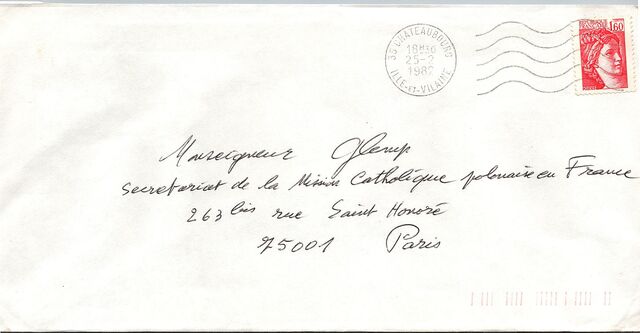 35 CHATEAUBOURG
18H30
25-2
1982
ILLE-ET-VILAINE
1,60
Monseigneur Glemp
Secretariat de la Mission Catholique polonaise en France
263 bis rue Saint Honoré
75001 Paris